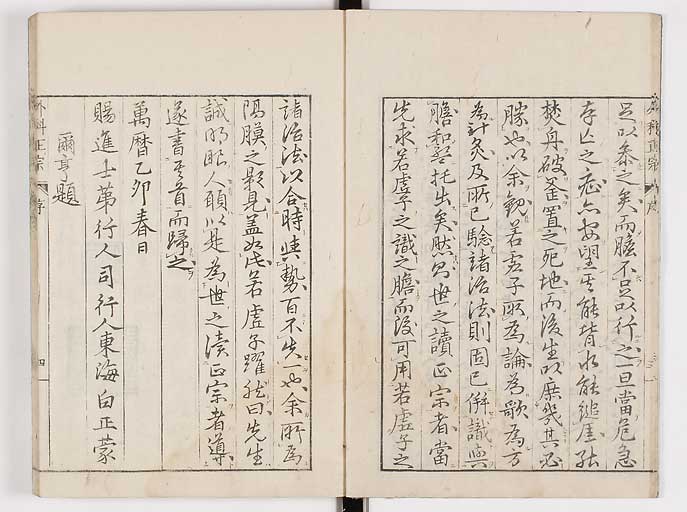 足以叅之矣而膽不足以行之一旦當危急
存亡之症亦安望其能背水能縋崖能
焚舟破釜置之死地而後生以庶幾其必
勝也以余觀若虛子所為論為歌為方
為針灸及所已驗諸治法則固已併識與
膽和盤托出矣然則世之讀正宗者當
先求若虛子之識之膽而後可用若虛子之
諸治法以合時與勢百不失一也余所為
隔膜之影見蓋如此若虛子躍然曰先生
誠明眼人願以是為世之讀正宗者導
遂書其首而歸之
萬曆乙卯春日
賜進士第行人司行人東海白正蒙
爾亨題
外科正宗 序 四
外科正宗 序